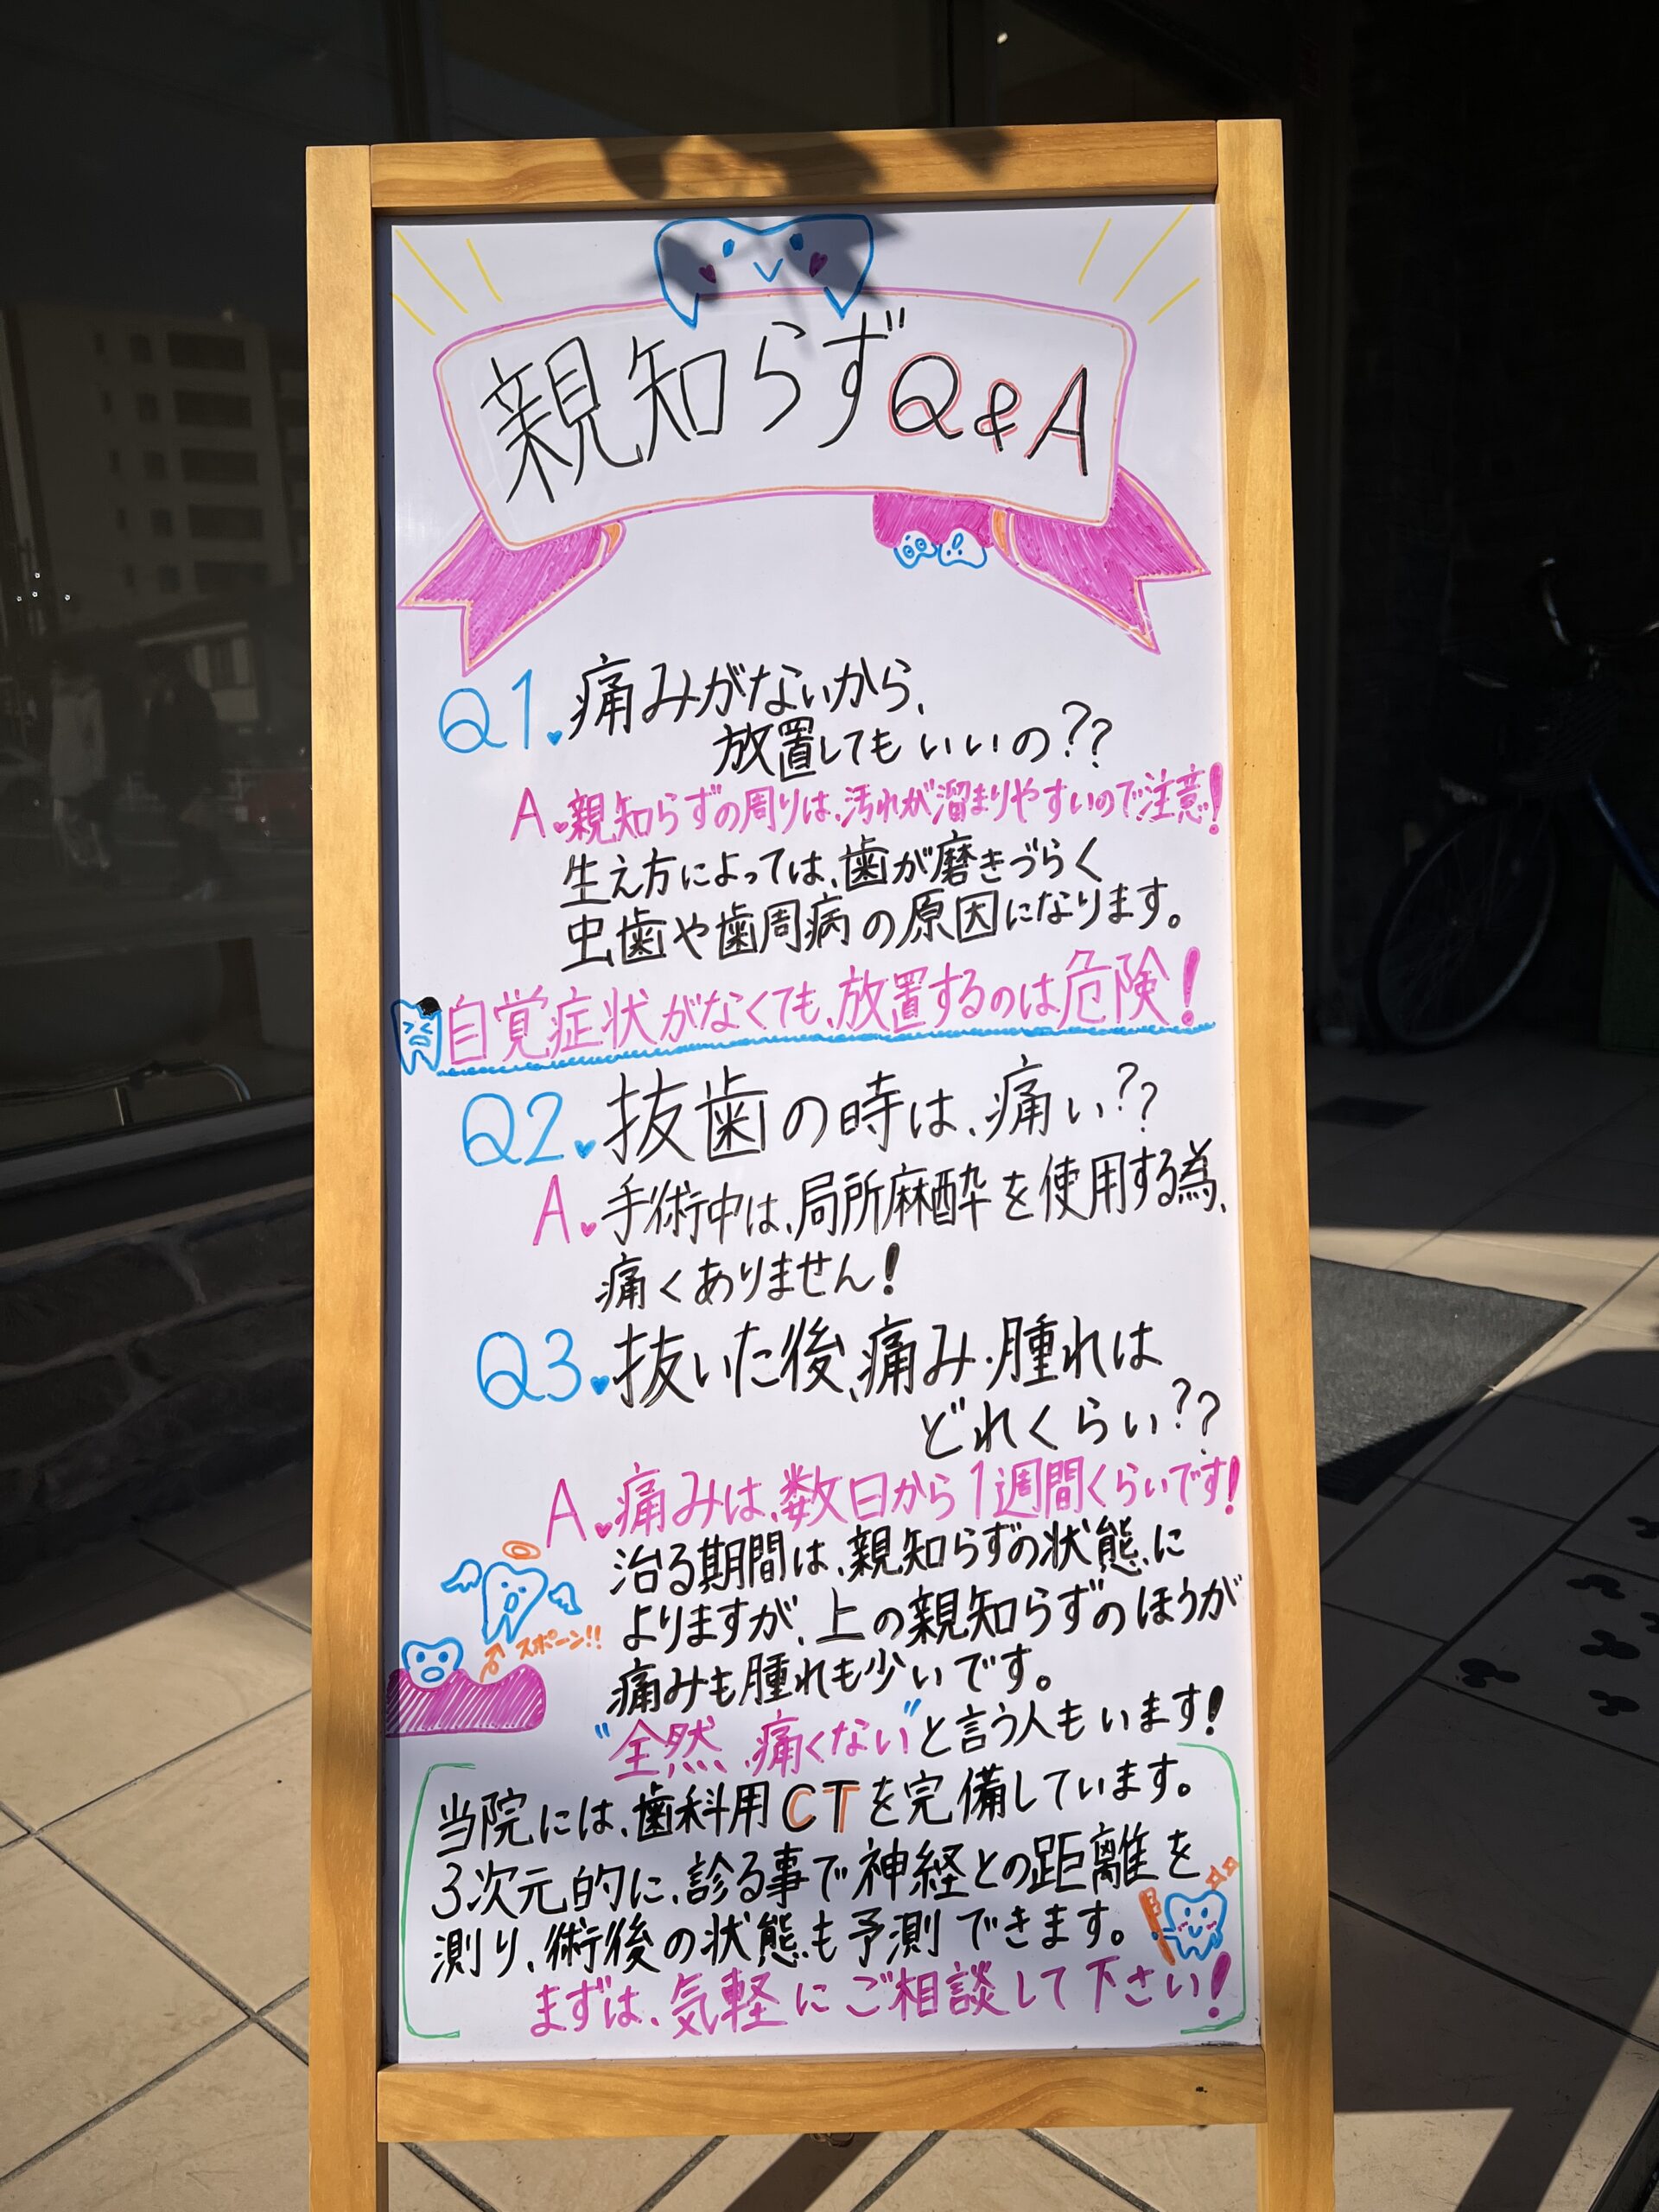 親知らずQ&A
Q1.痛みがないから、
放置してもいいの??
A.親知らずの周りは、汚れが溜まりやすいので注意!
生え方によっては、歯が磨きづらく
虫歯や歯周病の原因になります。
自覚症状がなくても、放置するのは危険!
Q2.抜歯の時は、痛い??
A.手術中は、局所麻酔を使用する為、
痛くありません!
Q3.抜いた後、痛み・腫れは
どれくらい??
A.痛みは、数日から1週間くらいです!
治る期間は、親知らずの状態に
よりますが、上の親知らずのほうが
スポーン!!
痛みも腫れも少いです。
"全然、痛くない"と言う人もいます!
当院には、歯科用CTを完備しています。
3次元的に、診る事で神経との距離を
測り、術後の状態も予測できます。
まずは、気軽にご相談して下さい!